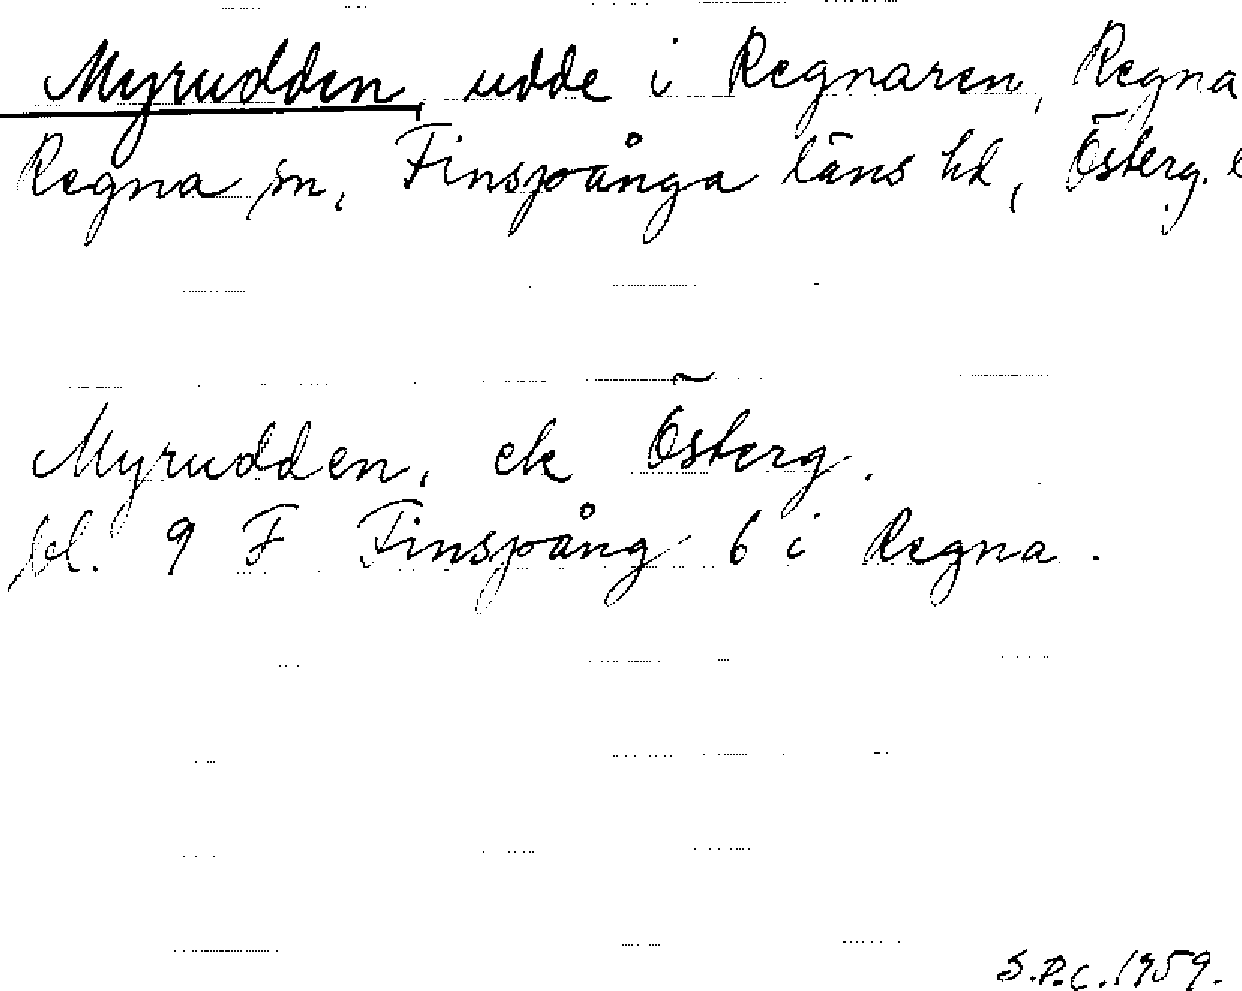 Myrudden, udde i Regnaren, Regna
Regna sn, Finspånga läns hd, Österg. l
Myrudden, ek Österg.
bl. 9 F Finspång 6 i Regna.
S.P.C. 1959.